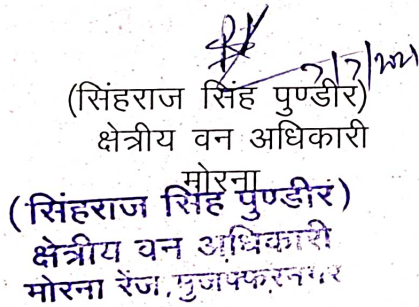 7/7/2021
(सिंहराज सिंह पुण्डीर)
क्षेत्रीय वन अधिकारी
मोरना
(सिंहराज सिंह पुण्डीर)
क्षेत्रीय वन अधिकारी
मोरना रेंज, मुजफ्फरनगर